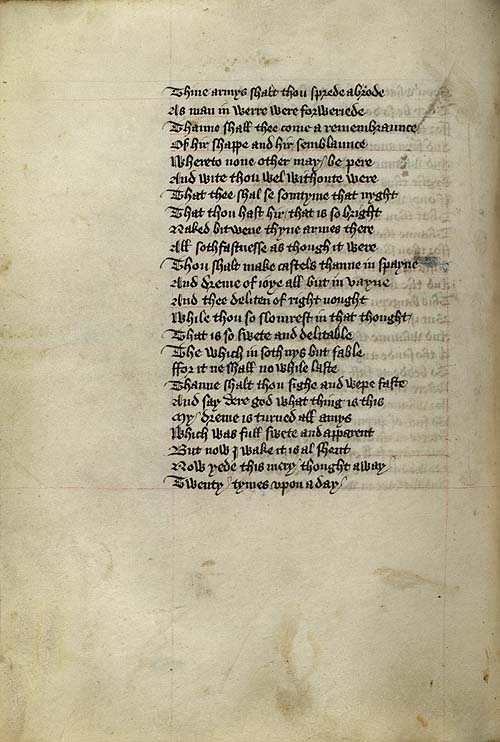 Thine armys shalt thou sprede abrode
As man in werre were forweriede
Thanne shall thee come a remembraunce
Of hir shappe and hir semblaunce
Whereto none other may be pere
And wite thou wel withoute were
That thee shal se somtyme that nyght
That thou hast hir that is so bright
Naked bitwene thyne armes there
All sothfastnesse as though it were
Thou shalt make castels thanne in spayne
And dreme of ioye all but in vayne
And thee deliten of right nought
While thou so slomrest in that thought
That is so swete and delitable
The which in soth nys but fable
ffor it ne shall no while laste
Thanne shalt thou sighe and wepe faste
And say dere god what thing is this
My dreme is turned all amys
Which was full swete and apparent
But now I wake it is al shent
Now yede this mery thought away
Twenty tymes upon a day